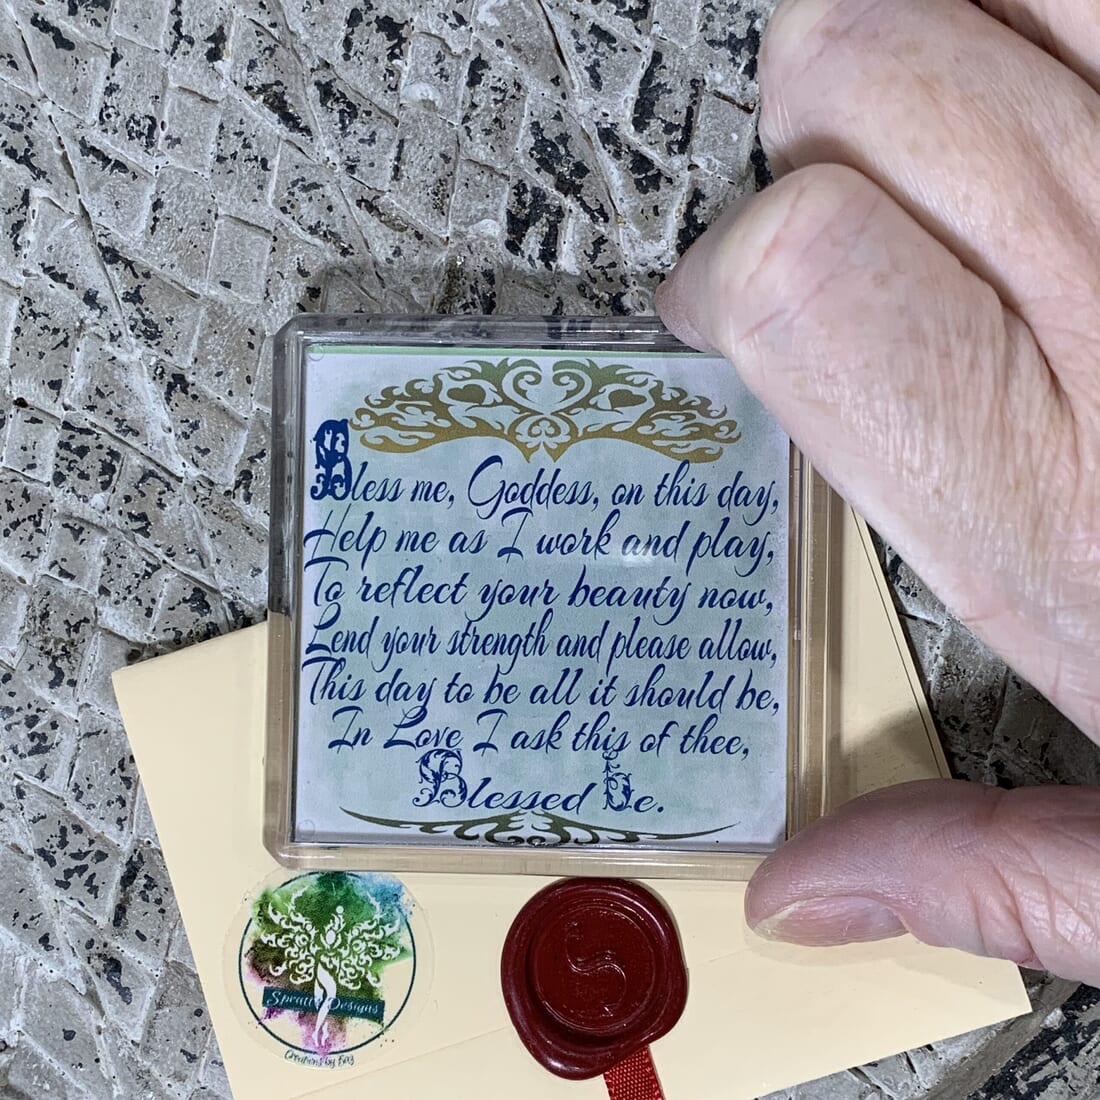 Bless me, Goddess, on this day,
Help me as I work and play,
To reflect your beauty now,
Lend your strength and please allow,
This day to be all it should be,
In Love I ask this of thee,
Blessed be.
Designs
Creations by
S